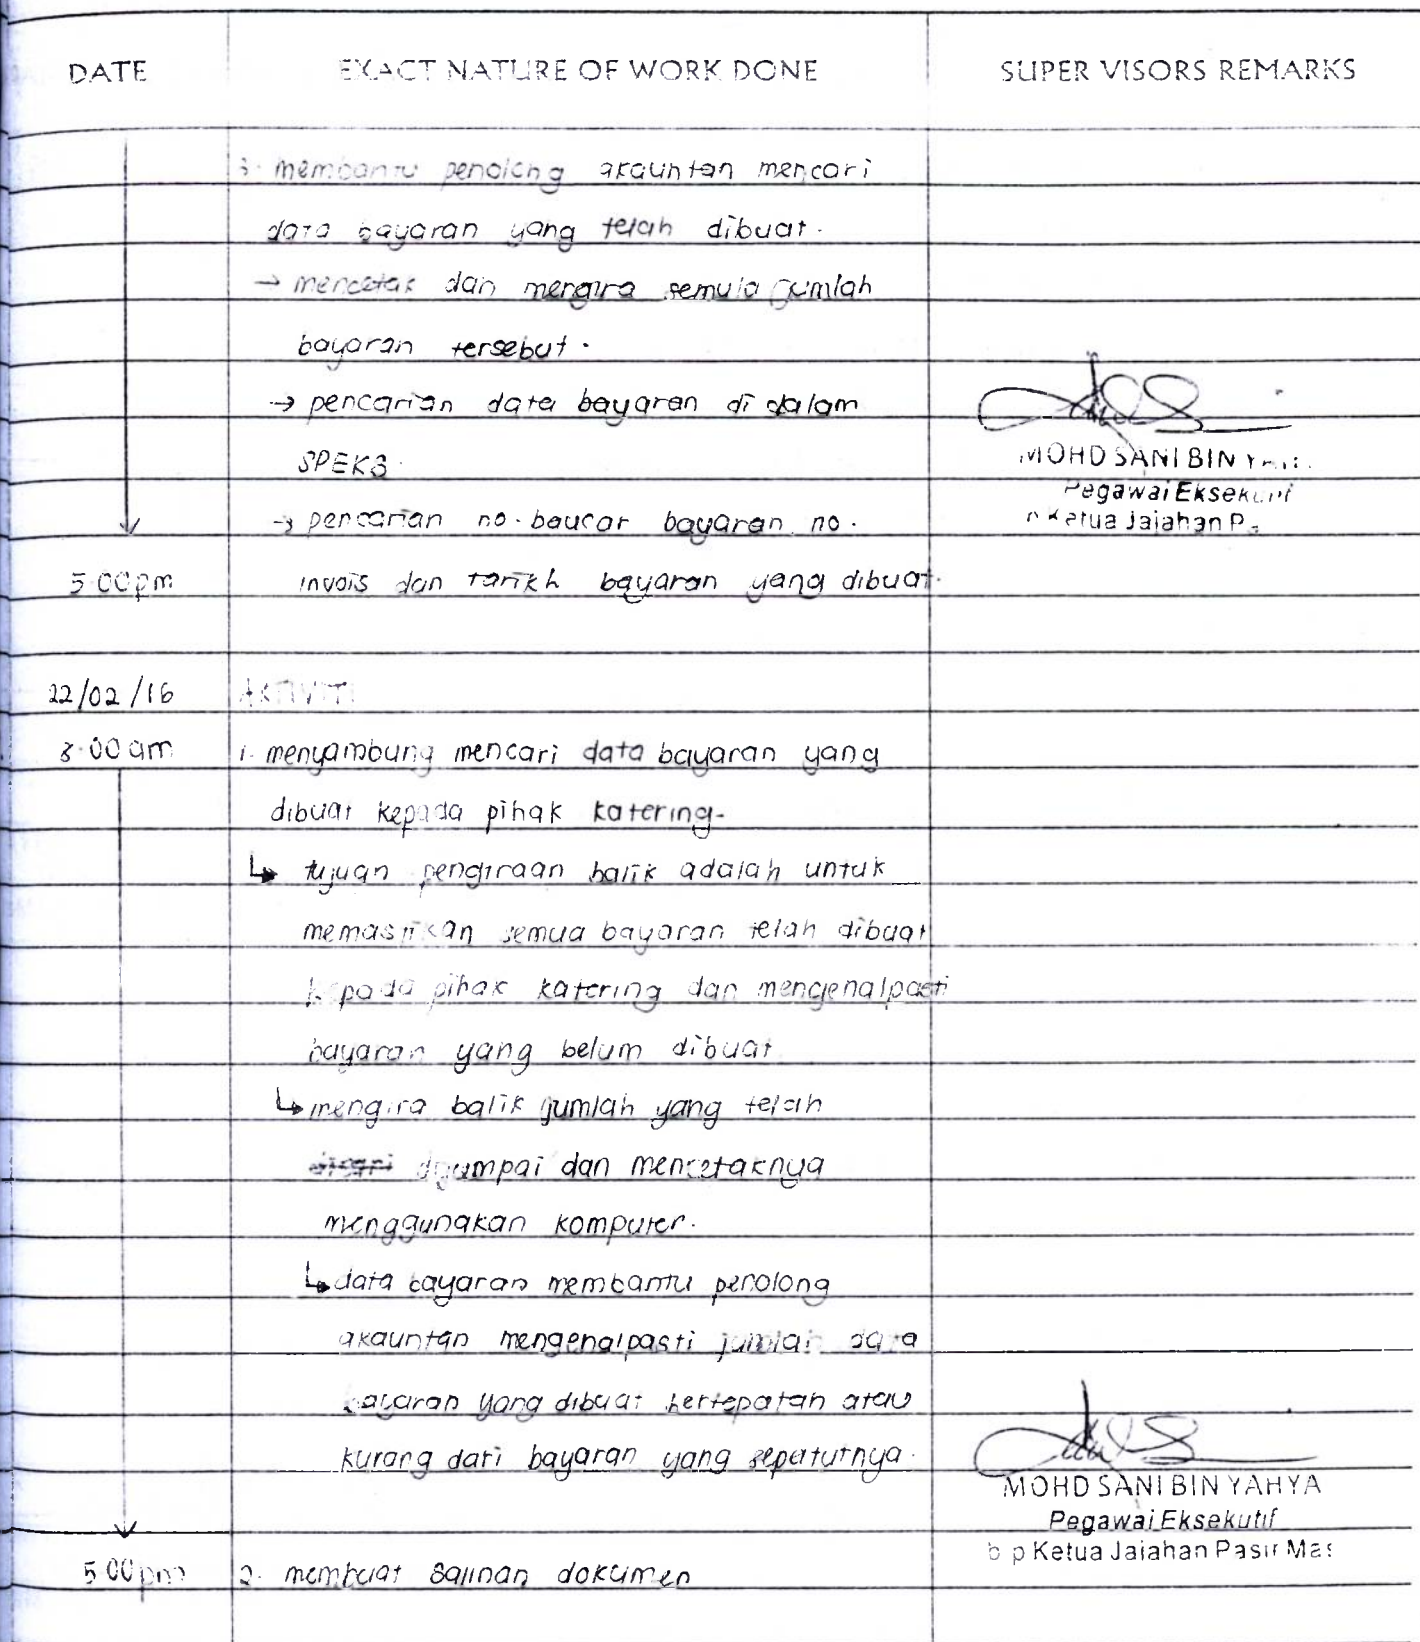 DATE EXACT NATURE OF WORK DONE SUPER VISORS REMARKS
3. membantu penolong akauntan mencari
data bayaran yang telah dibuat.
→ mencetak dan mengira semula jumlah
bayaran tersebut.
→ pencarian data bayaran di dalam
SPEKS.
→ pencarian no. baucar bayaran no.
5.00pm invois dan tarikh bayaran yang dibuat.
MOHD SANI BIN
Pegawai Eksekutif
Ketua Jajahan
22/02/16 AKTIVITI
8.00am 1. menyambung mencari data bayaran yang
dibuat kepada pihak katering.
↳ tujuan pengiraan balik adalah untuk
memastikan semua bayaran telah dibuat
kepada pihak katering dan mengenalpasti
bayaran yang belum dibuat
↳ mengira balik jumlah yang telah
dicari dijumpai dan mencetaknya
menggunakan komputer.
↳ data bayaran membantu penolong
akauntan mengenalpasti jumlah data
bayaran yang dibuat bertepatan atau
kurang dari bayaran yang sepatutnya.
MOHD SANI BIN YAHYA
Pegawai Eksekutif
b p Ketua Jajahan Pasir Mas
5.00pm 2. membuat salinan dokumen